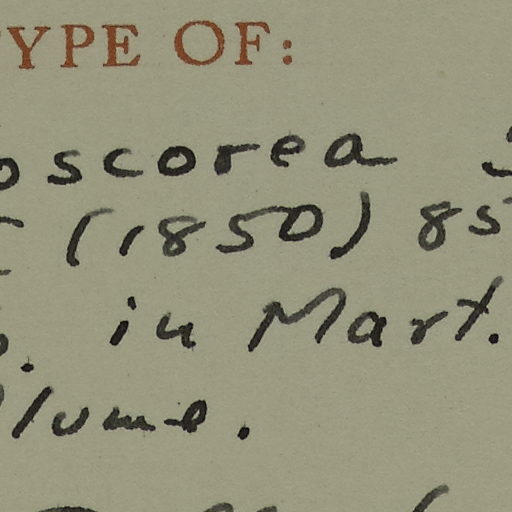 YPE OF:
oscorea
(1850) 85
in Mart.
lume.